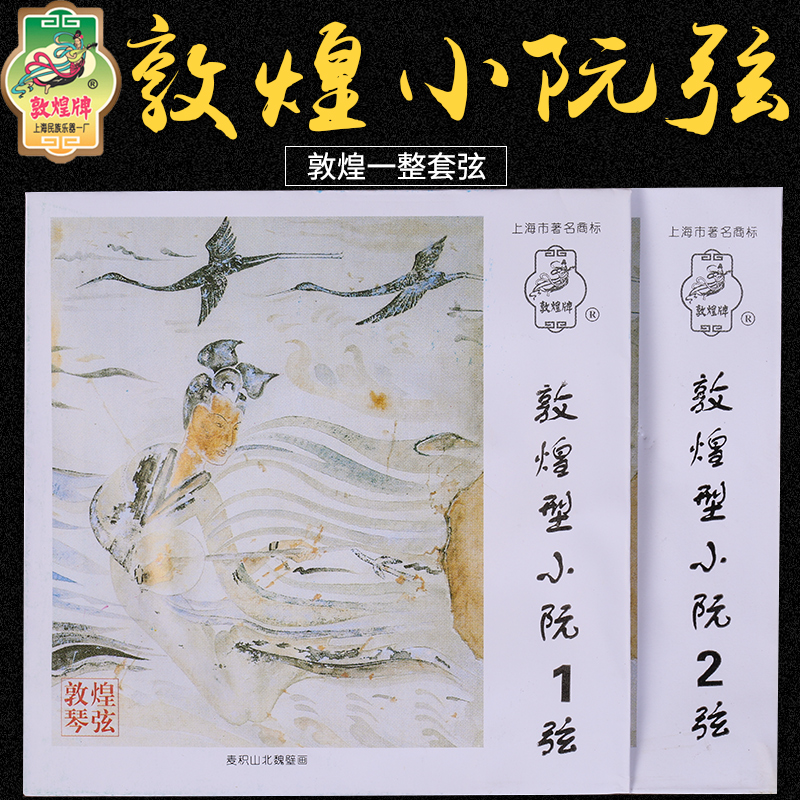 敦煌牌
®
上海民族乐器一厂
敦煌小阮弦
敦煌一整套弦
上海市著名商标
敦煌牌
®
敦煌型小阮1弦
敦煌琴弦
麦积山北魏壁画
上海市著名商标
敦煌牌
®
敦煌型小阮2弦